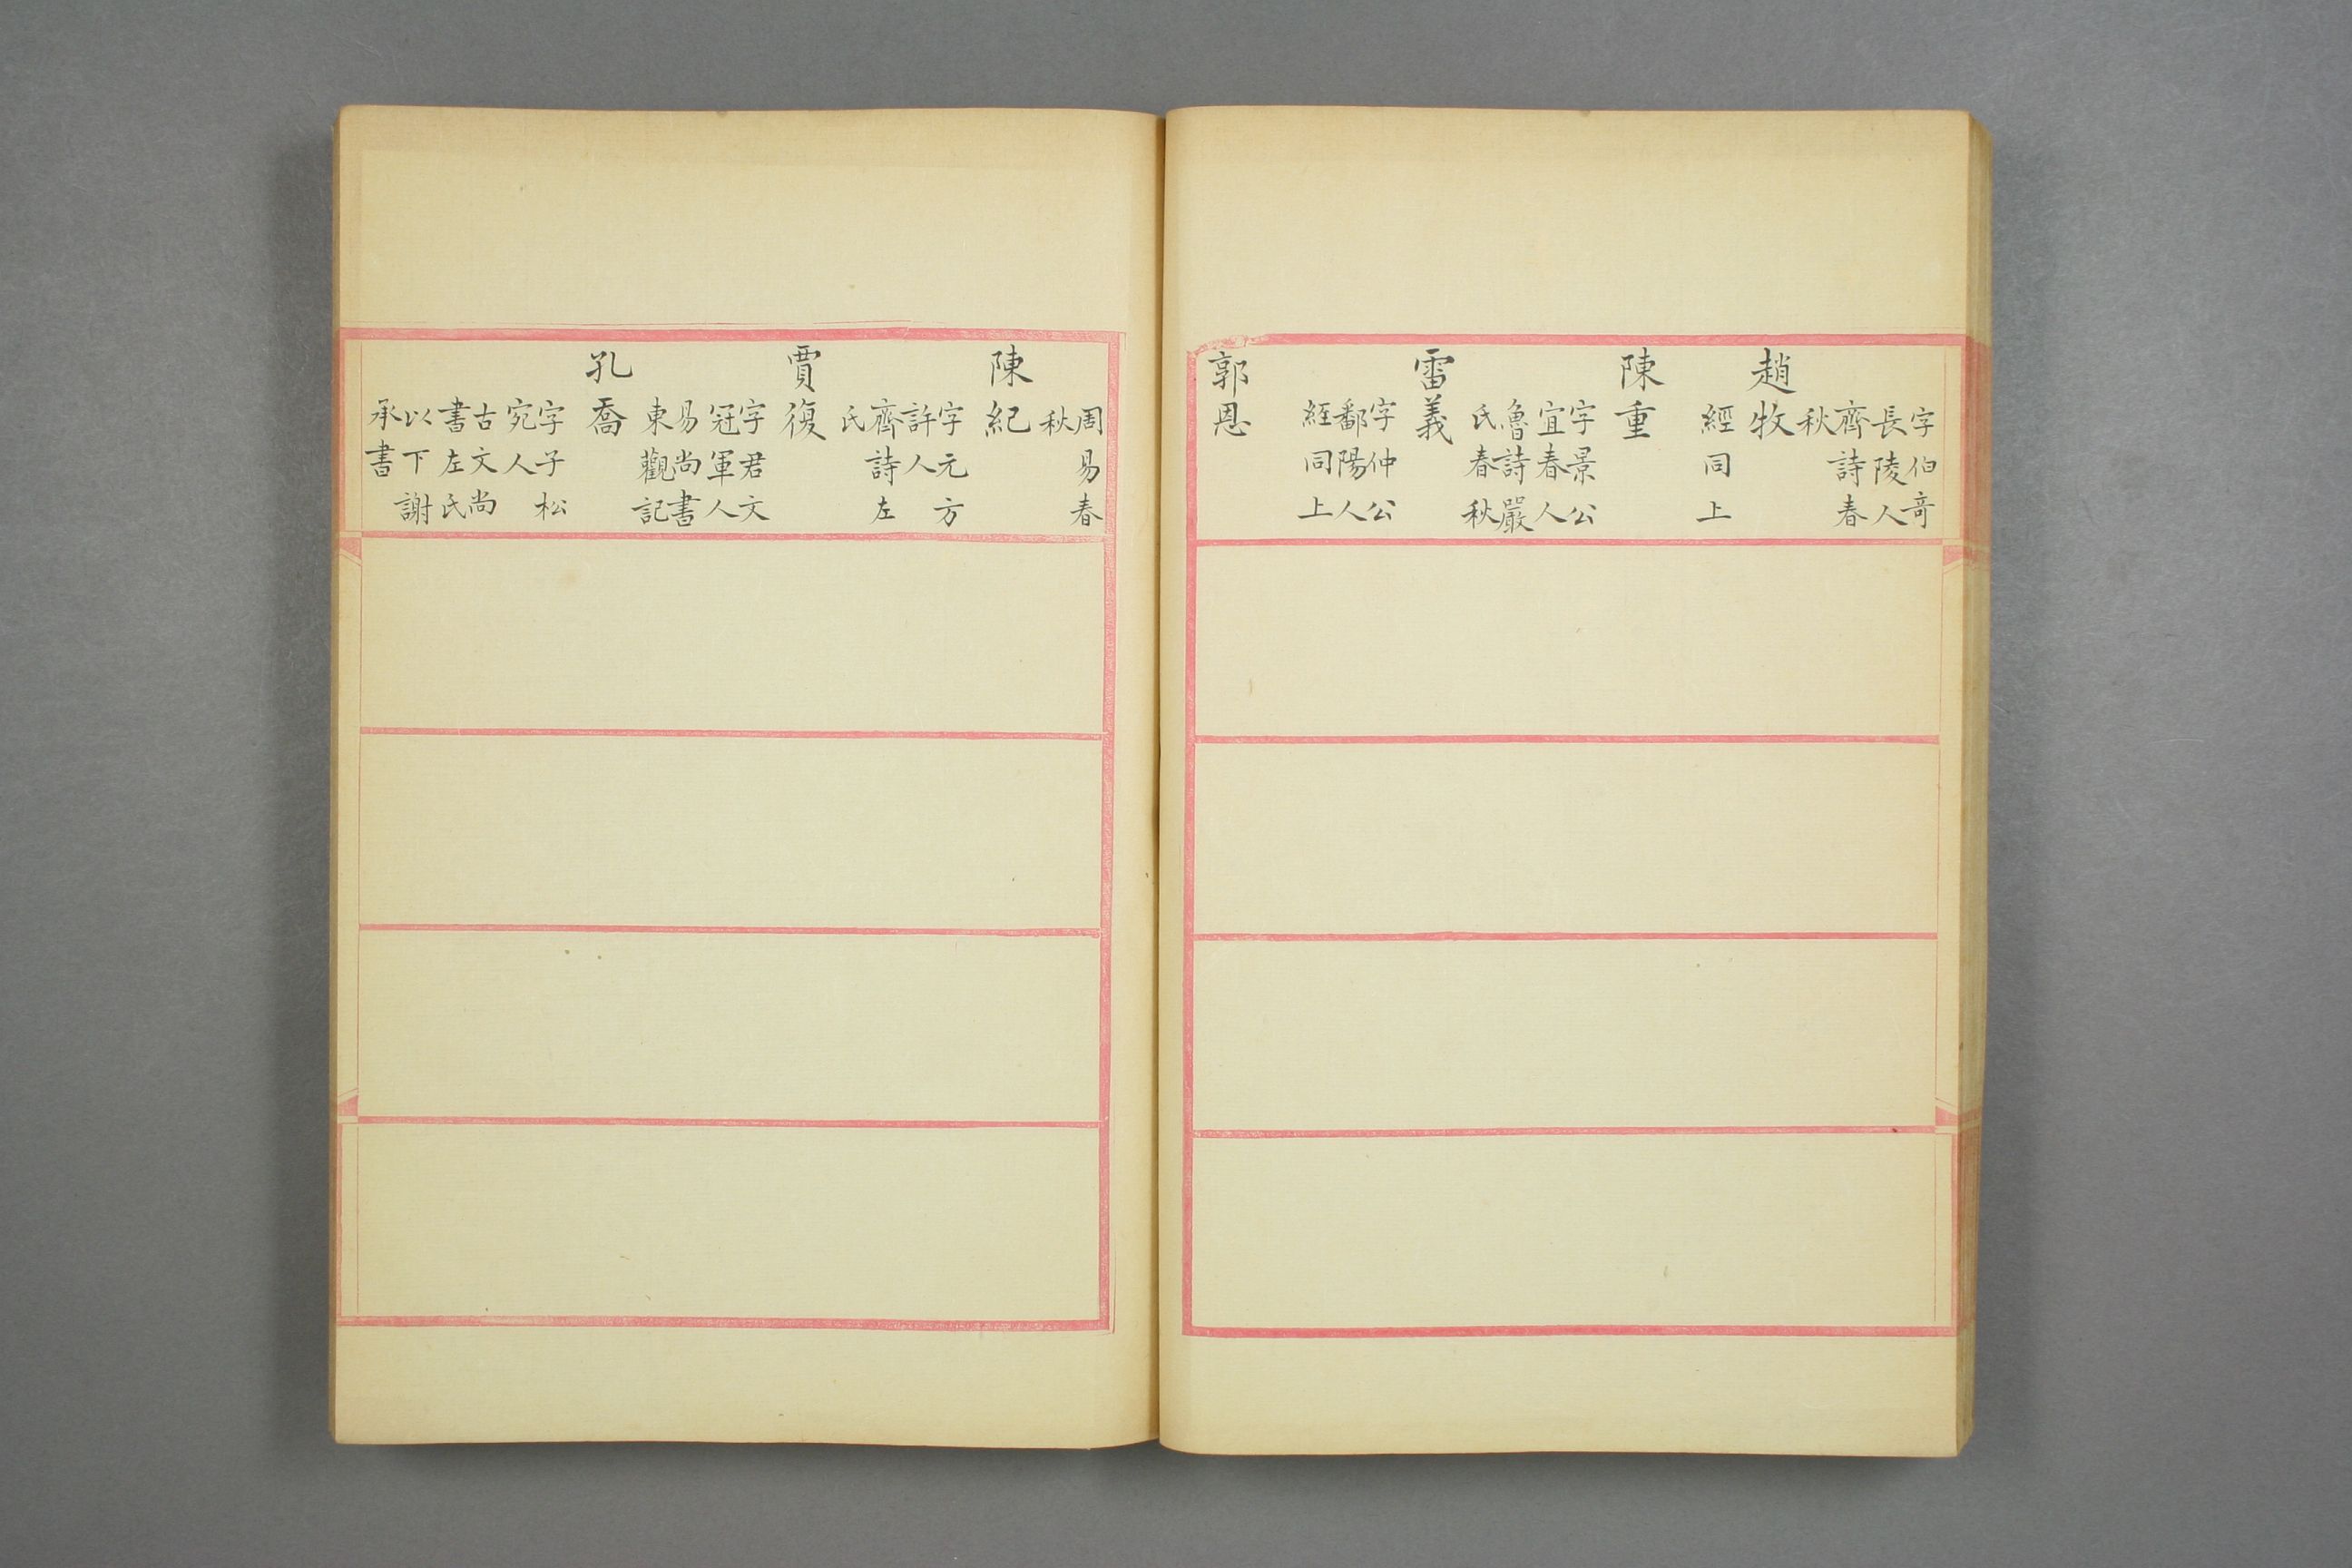 字伯奇
長陵人
齊詩春
秋
趙牧
經同上
陳重
字景公
宜春人
魯詩嚴
氏春秋
雷義
字仲公
鄱陽人
經同上
郭恩
周易春
秋
陳紀
字元方
許人
齊詩左
氏
賈復
字君文
冠軍人
易尚書
東觀記
孔喬
字子松
宛人
古文尚
書左氏
以下謝
承書